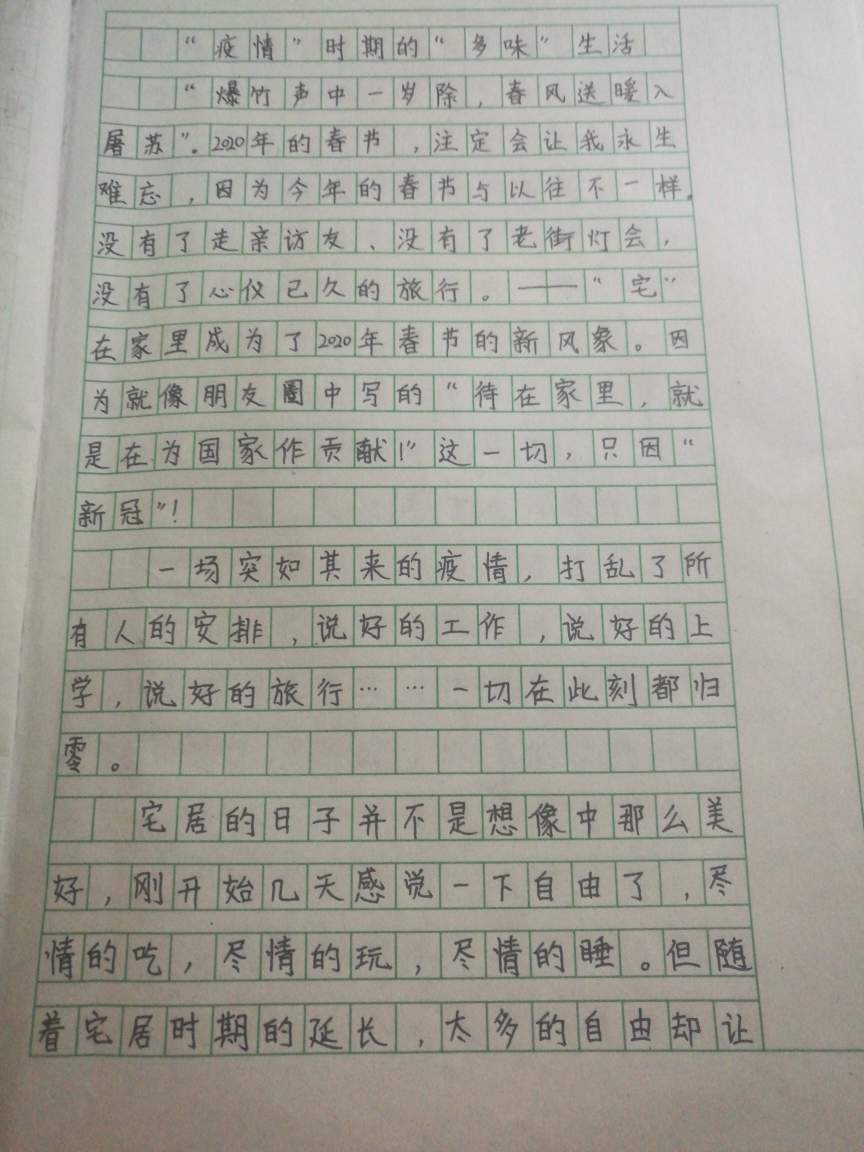 “疫情”时期的“多味”生活
“爆竹声中一岁除，春风送暖入
屠苏”。2020年的春节，注定会让我永生
难忘，因为今年的春节与以往不一样。
没有了走亲访友、没有了老街灯会，
没有了心仪已久的旅行。——“宅”
在家里成为了2020年春节的新风象。因
为就像朋友圈中写的“待在家里，就
是在为国家作贡献！”这一切，只因“
新冠”！
一场突如其来的疫情，打乱了所
有人的安排，说好的工作，说好的上
学，说好的旅行……一切在此刻都归
零。
宅居的日子并不是想像中那么美
好，刚开始几天感觉一下自由了，尽
情的吃，尽情的玩，尽情的睡。但随
着宅居时期的延长，太多的自由却让